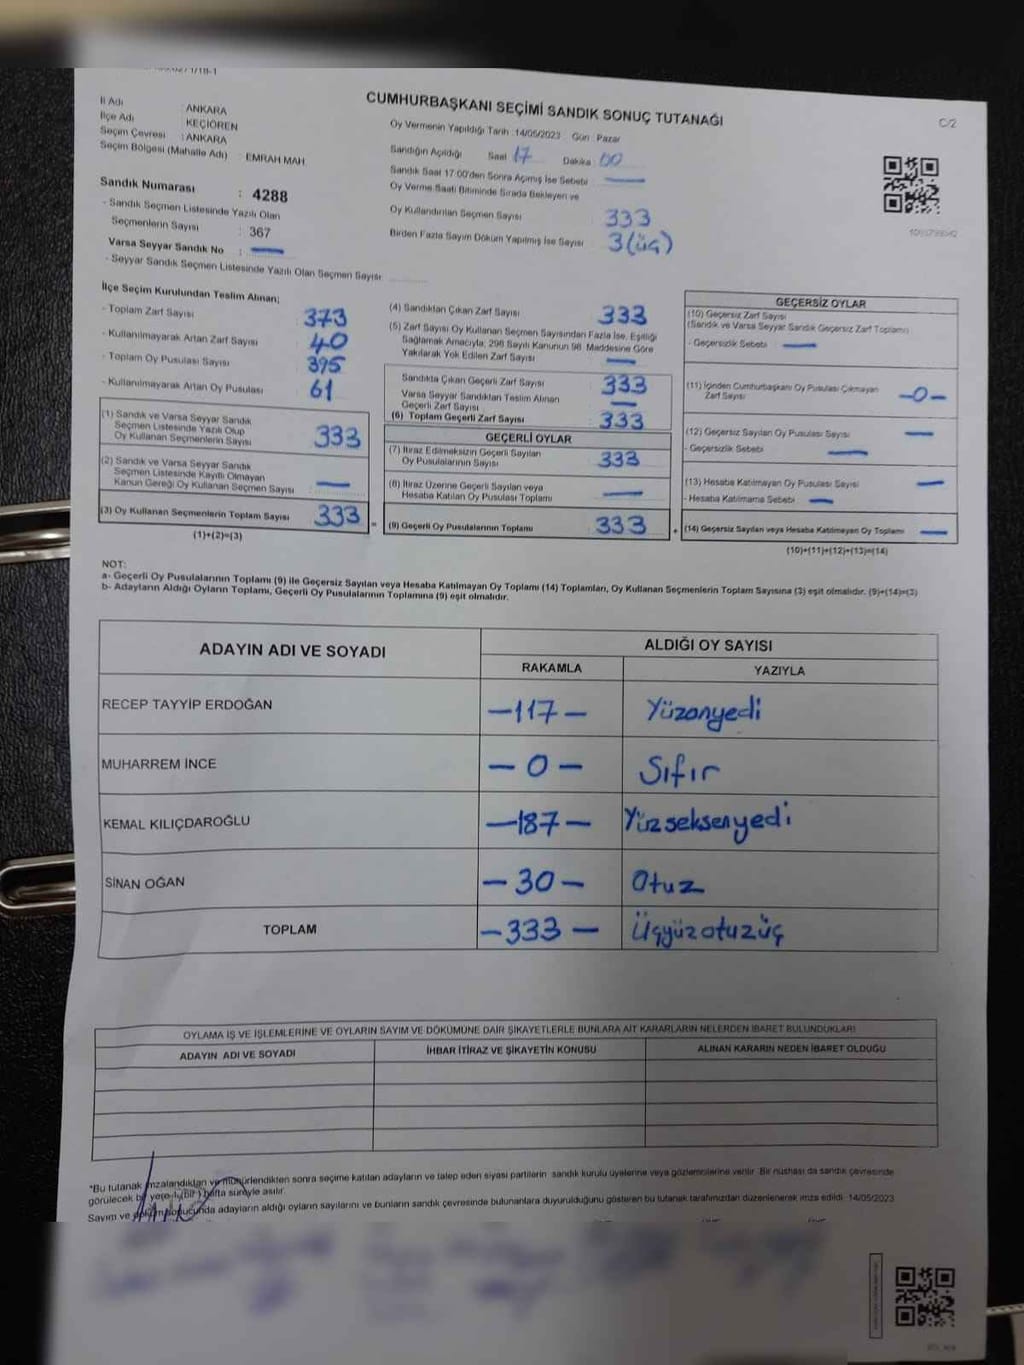 CUMHURBAŞKANI SEÇİMİ SANDIK SONUÇ TUTANAĞI
C/2
İl Adı : ANKARA
İlçe Adı : KEÇİÖREN
Seçim Çevresi : ANKARA
Seçim Bölgesi (Mahalle Adı) : EMRAH MAH
Sandık Numarası : 4288
- Sandık Seçmen Listesinde Yazılı Olan
Seçmenlerin Sayısı : 367
Varsa Seyyar Sandık No : —
- Seyyar Sandık Seçmen Listesinde Yazılı Olan Seçmen Sayısı
Oy Vermenin Yapıldığı Tarih : 14/05/2023 Gün : Pazar
Sandığın Açıldığı Saat 17 Dakika 00
Sandık Saat 17:00'den Sonra Açılmış İse Sebebi : —
Oy Verme Saati Bitiminde Sırada Bekleyen ve
Oy Kullandırılan Seçmen Sayısı : 333
Birden Fazla Sayım Döküm Yapılmış İse Sayısı : 3 (üç)
İlçe Seçim Kurulundan Teslim Alınan;
- Toplam Zarf Sayısı : 373
- Kullanılmayarak Artan Zarf Sayısı : 40
- Toplam Oy Pusulası Sayısı : 395
- Kullanılmayarak Artan Oy Pusulası : 61
(1) Sandık ve Varsa Seyyar Sandık
Seçmen Listesinde Yazılı Olup
Oy Kullanan Seçmenlerin Sayısı : 333
(2) Sandık ve Varsa Seyyar Sandık
Seçmen Listesinde Kayıtlı Olmayan
Kanun Gereği Oy Kullanan Seçmen Sayısı : —
(3) Oy Kullanan Seçmenlerin Toplam Sayısı : 333
(1)+(2)=(3)
(4) Sandıktan Çıkan Zarf Sayısı : 333
(5) Zarf Sayısı Oy Kullanan Seçmen Sayısından Fazla İse, Eşitliği
Sağlamak Amacıyla; 298 Sayılı Kanunun 98. Maddesine Göre
Yakılarak Yok Edilen Zarf Sayısı : —
Sandıkta Çıkan Geçerli Zarf Sayısı : 333
Varsa Seyyar Sandıktan Teslim Alınan
Geçerli Zarf Sayısı : —
(6) Toplam Geçerli Zarf Sayısı : 333
GEÇERLİ OYLAR
(7) İtiraz Edilmeksizin Geçerli Sayılan
Oy Pusulalarının Sayısı : 333
(8) İtiraz Üzerine Geçerli Sayılan veya
Hesaba Katılan Oy Pusulası Toplamı : —
(9) Geçerli Oy Pusulalarının Toplamı : 333
GEÇERSİZ OYLAR
(10) Geçersiz Zarf Sayısı
(Sandık ve Varsa Seyyar Sandık Geçersiz Zarf Toplamı)
- Geçersizlik Sebebi : —
(11) İçinden Cumhurbaşkanı Oy Pusulası Çıkmayan
Zarf Sayısı —0—
(12) Geçersiz Sayılan Oy Pusulası Sayısı : —
- Geçersizlik Sebebi : —
(13) Hesaba Katılmayan Oy Pusulası Sayısı : —
- Hesaba Katılmama Sebebi : —
(14) Geçersiz Sayılan veya Hesaba Katılmayan Oy Toplamı : —
(10)+(11)+(12)+(13)=(14)
NOT:
a- Geçerli Oy Pusulalarının Toplamı (9) ile Geçersiz Sayılan veya Hesaba Katılmayan Oy Toplamı (14) Toplamları, Oy Kullanan Seçmenlerin Toplam Sayısına (3) eşit olmalıdır. (9)+(14)=(3)
b- Adayların Aldığı Oyların Toplamı, Geçerli Oy Pusulalarının Toplamına (9) eşit olmalıdır.
ADAYIN ADI VE SOYADI
ALDIĞI OY SAYISI
RAKAMLA YAZIYLA
RECEP TAYYİP ERDOĞAN —117— Yüzonyedi
MUHARREM İNCE —0— Sıfır
KEMAL KILIÇDAROĞLU —187— Yüzseksenyedi
SİNAN OĞAN —30— Otuz
TOPLAM —333— Üçyüzotuzüç
OYLAMA İŞ VE İŞLEMLERİNE VE OYLARIN SAYIM VE DÖKÜMÜNE DAİR ŞİKAYETLERLE BUNLARA AİT KARARLARIN NELERDEN İBARET BULUNDUKLARI
ADAYIN ADI VE SOYADI İHBAR İTİRAZ VE ŞİKAYETİN KONUSU ALINAN KARARIN NEDEN İBARET OLDUĞU
*Bu tutanak imzalandıktan ve mühürlendikten sonra seçime katılan adayların ve talep eden siyasi partilerin sandık kurulu üyelerine veya gözlemcilerine verilir. Bir nüshası da sandık çevresinde
görülecek bir yere 1 (bir) hafta süreyle asılır.
Sayım ve döküm sonucunda adayların aldığı oyların sayılarını ve bunların sandık çevresinde bulunanlara duyurulduğunu gösteren bu tutanak tarafımızdan düzenlenerek imza edildi. 14/05/2023